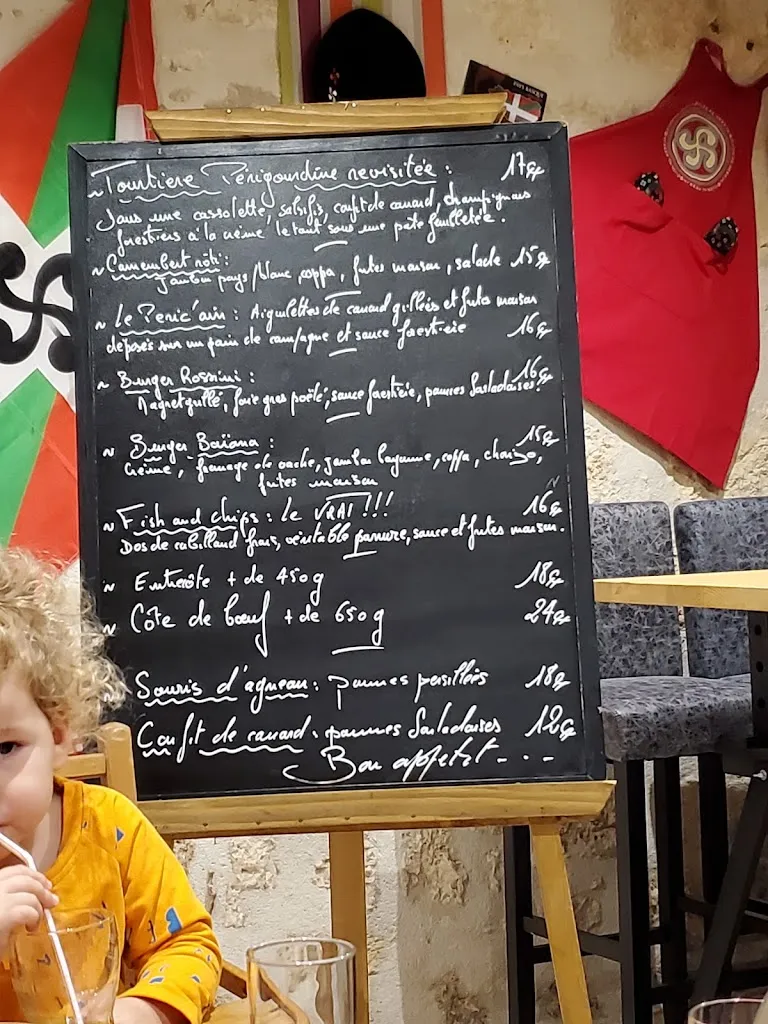 ~ Tourtière Périgourdine revisitée : 17€
Dans une cassolette, salsifis, confit de canard, champignons
forestiers à la crème le tout sous une pâte feuilletée.
~ Camembert rôti :
Jambon pays/blanc, coppa, frites maison, salade 15€
~ Le Peric'ain : Aiguillettes de canard grillées et frites maison
déposés sur un pain de campagne et sauce forestière 16€
~ Burger Rossini : 16€
Magret grillé, foie gras poêlé, sauce forestière, pommes Sarladaises.
~ Burger Baïona : 15€
Crème, fromage de vache, jambon bayonne, coppa, chorizo,
frites maison
~ Fish and chips : Le VRAI !!! 16€
Dos de cabillaud frais, véritable panure, sauce et frites maison.
~ Entrecôte + de 450g 18€
~ Côte de bœuf + de 650g 24€
~ Souris d'agneau : pommes persillées 18€
Confit de canard : pommes Sarladaises 12€
Bon appétit...
PAYS BASQUE